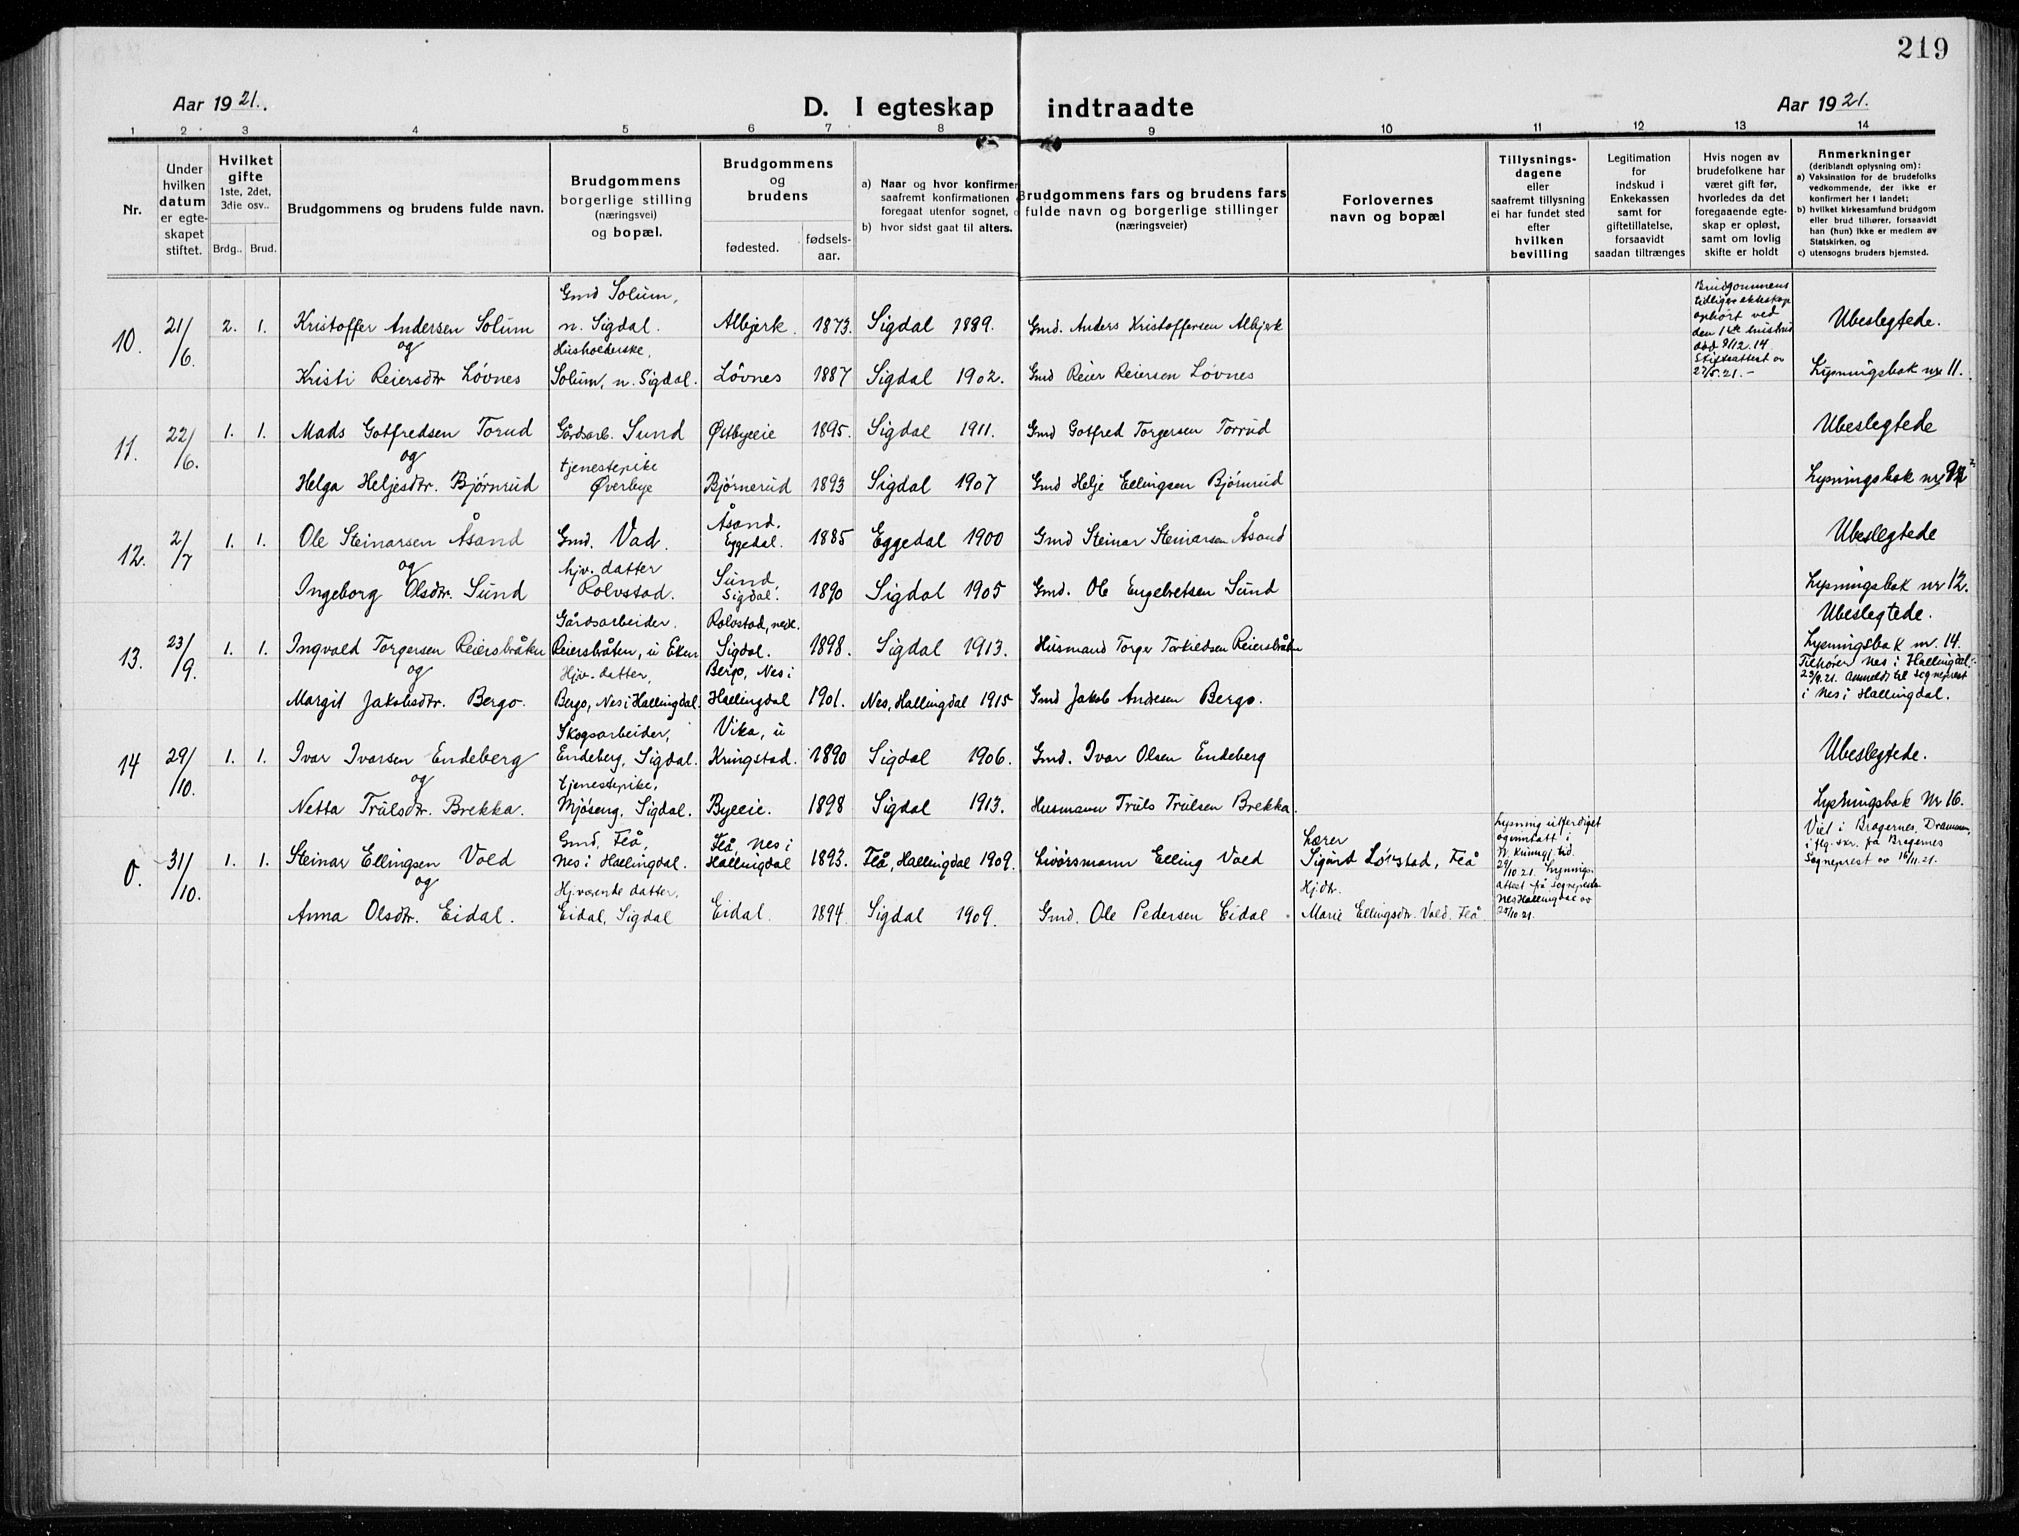 219
Aar 1921.
D. I egteskap indtraadte
Aar 1921.
1 2 3 4 5 6 7 8 9 10 11 12 13 14
Nr.
Under hvilken datum er egteskapet stiftet.
Hvilket gifte
1ste, 2det, 3die osv..
Brdg.. Brud.
Brudgommens og brudens fulde navn.
Brudgommens borgerlige stilling (næringsvei) og bopæl.
Brudgommens og brudens
fødested.
fødselsaar.
a) Naar og hvor konfirmer
saafremt konfirmationen
foregaat utenfor sognet,
b) hvor sidst gaat til alters.
Brudgommens fars og brudens fars
fulde navn og borgerlige stillinger
(næringsveier)
Forlovernes
navn og bopæl
Tillysningsdagene
eller
saafremt tillysning
ei har fundet sted
efter
hvilken
bevilling
Legitimation
for
indskud i
Enkekassen
samt for
giftetillatelse,
forsaavidt
saadan tiltrænges
Hvis nogen av
brudefolkene har
været gift før,
hvorledes da det
foregaaende egteskap er opløst,
samt om lovlig
skifte er holdt
Anmerkninger
(deriblandt oplysning om):
a) Vaksination for de brudefolks
vedkommende, der ikke er
konfirmert her i landet;
b) hvilket kirkesamfund brudgom
eller brud tilhører, forsaavidt
han (hun) ikke er medlem av
Statskirken, og
c) utensogns bruders hjemsted.
10. 21/6 2. 1. Kristoffer Andersen Solum
Gmd Solum, n. Sigdal. Albjerk. 1873. Sigdal 1889. Gmd. Anders Kristoffersen Albjerk
Brudgommens tidligere ekteskap ophørt ved den 1ste hustrus død 9/12.14. Skifteattest av 27/5.21.-
Ubeslegtede.
og
Kristi Reiersdtr Løvnes
Husholderske, Solum, n. Sigdal. Løvnes 1887 Sigdal 1902. Gmd Reier Reiersen Løvnes
Lysningsbok nr 11.
11. 22/6. 1. 1. Mads Gotfredsen Torud Gårdsarb. Sund Østbyeie 1895. Sigdal 1911. Gmd Gotfred Torgersen Torrud Ubeslegtede
og
Helga Heljesdtr. Bjørnrud tjenestepike Øverbye Bjørnerud 1893 Sigdal 1907 Gmd Helje Ellingsen Bjørnrud Lysningsbok nr
12. 2/7 1. 1. Ole Steinarsen Åsand Gmd. Vad. Åsand. Eggedal. 1885 Eggedal 1900 Gmd Steinar Steinarsen Åsand Ubeslegtede
og
Ingeborg Olsdtr. Sund hjv. datter Rolvstad. Sund, Sigdal. 1890 Sigdal 1905 Gmd. Ole Engebretsen Sund Lysningsbok nr 12.
13. 23/9 1. 1. Ingvald Torgersen Reiersbråten Gårdsarbeider, Reiersbråten, u Eken Rolvstad, nedl. Sigdal. 1898. Sigdal 1913. Husmand Torger Torkildsen Reiersbråten
Ubeslegtede.
Lysningsbok nr. 14.
og
Margit Jakobsdtr. Bergo. Hjv. datter, Bergo, Nes i Hallingdal. Bergo, Nes i Hallingdal 1901. Nes, Hallingdal 1915 Gmd Jakob Andresen Bergo.
Tilhører Nes i Hallingdal.
23/9.21. anmeldt til sogneprest
i Nes i Hallingdal.
14 29/10. 1. 1. Ivar Ivarsen Endeberg Skogsarbeider, Endeberg, Sigdal. Vika, u Kringstad. 1890 Sigdal 1906. Gmd. Ivar Olsen Endeberg Ubeslegtede.
og
Netta Trulsdtr. Brekka. tjenestepike, Mjøseng, Sigdal. Byeeie. 1898 Sigdal 1913. Husmann Truls Trulsen Brekka. Lysningsbok Nr 16.
0. 31/10. 1. 1. Steinar Ellingsen Vold Gmd, Flå, Nes i Hallingdal. Flå, Nes i Hallingdal 1893. Flå, Hallingdal 1909. Livörsmann Elling Vold
Lærer Sigurd Lørstad, Flå
Lysning utferdiget og innsatt i
29/10.21. Lysningsattest på sogneprest Nes Hallingdal av
Viet i Bragernes, Drammen,
i flg. skr. fra Bragernes
Sogneprest av 16/11.21.
og
Anna Olsdtr. Eidal. Hjværende datter, Eidal, Sigdal Eidal. 1894. Sigdal 1909. Gmd. Ole Pedersen Eidal Hj.dtr. Marie Ellingsdtr. Vold. Flå